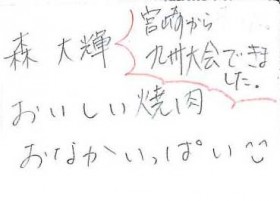 森 大輝
宮崎から
九州大会できま
した。
おいしい焼肉
おなかいっぱい